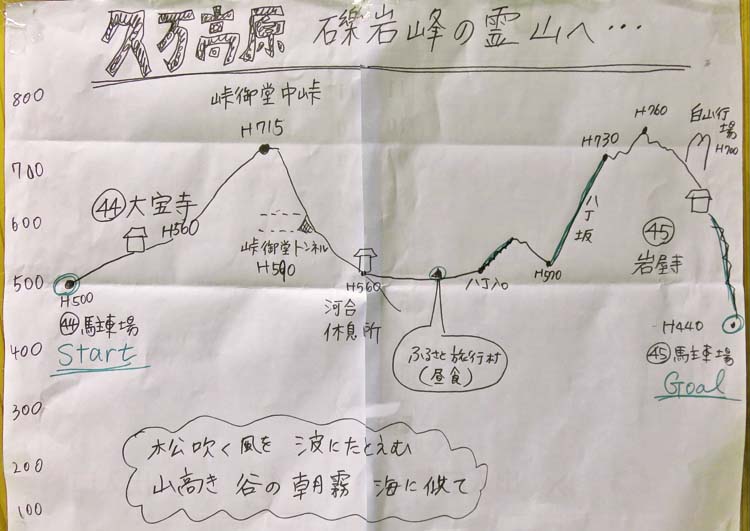 久万高原 礫岩峰の霊山へ…
800
700
600
500
400
300
200
100
峠御堂中峠
H715
㊹大宝寺
H560
峠御堂トンネル
H590
H500
㊹駐車場
Start
H560
河合
休息所
ふるさと旅行村
(昼食)
八丁入口
H570
八丁坂
H730
H760
白山行
場
H700
㊺
岩屋寺
H440
㊺駐車場
Goal
松吹く風を 波にたとえむ
山高き 谷の朝霧 海に似て